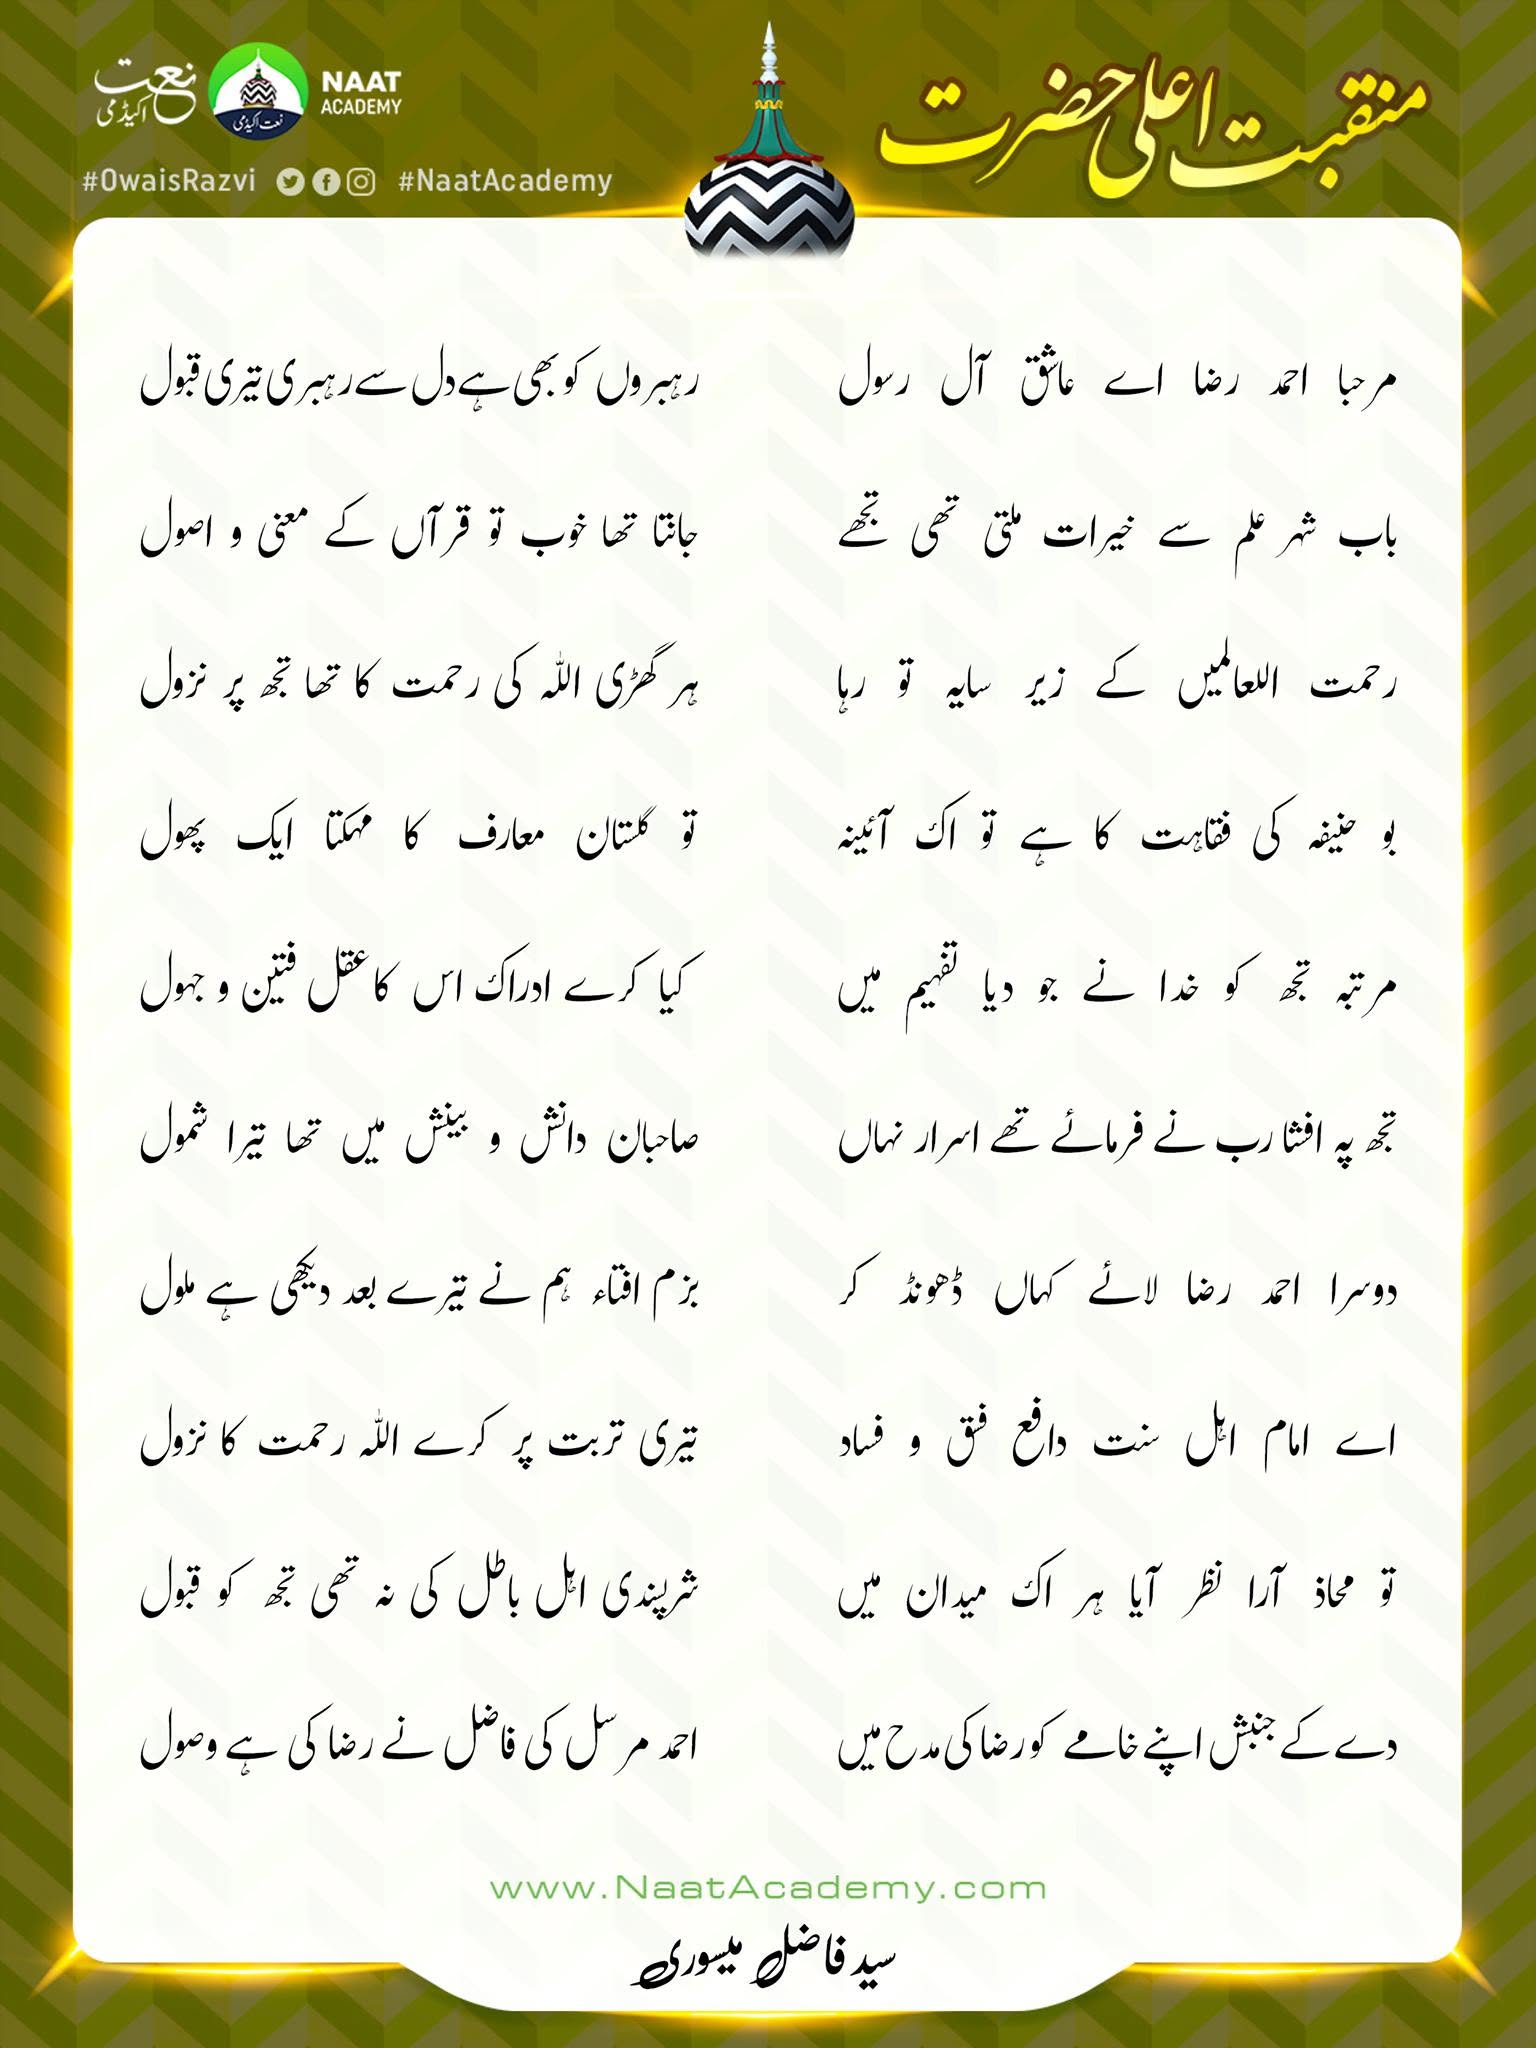 نعت اکیڈمی
نعت اکیڈمی
NAAT
ACADEMY
#OwaisRazvi #NaatAcademy
منقبت اعلیٰ حضرت
مرحبا احمد رضا اے عاشق آل رسول رہبروں کو بھی ہے دل سے رہبری تیری قبول
باب شہر علم سے خیرات ملتی تھی تجھے جانتا تھا خوب تو قرآں کے معنی و اصول
رحمت اللعالمیں کے زیر سایہ تو رہا ہر گھڑی اللہ کی رحمت کا تھا تجھ پر نزول
بو حنیفہ کی فقاہت کا ہے تو اک آئینہ تو گلستان معارف کا مہکتا ایک پھول
مرتبہ تجھ کو خدا نے جو دیا تفہیم میں کیا کرے ادراک اس کا عقل فتین و جہول
تجھ پہ افشا رب نے فرمائے تھے اسرار نہاں صاحبان دانش و بینش میں تھا تیرا شمول
دوسرا احمد رضا لائے کہاں ڈھونڈ کر بزم افتاء ہم نے تیرے بعد دیکھی ہے ملول
اے امام اہل سنت دافع فسق و فساد تیری تربت پر کرے اللہ رحمت کا نزول
تو محاذ آرا نظر آیا ہر اک میدان میں شرپسندی اہل باطل کی نہ تھی تجھ کو قبول
دے کے جنبش اپنے خامے کو رضا کی مدح میں احمد مرسل کی فاضل نے رضا کی ہے وصول
www.NaatAcademy.com
سید فاضل میسوری